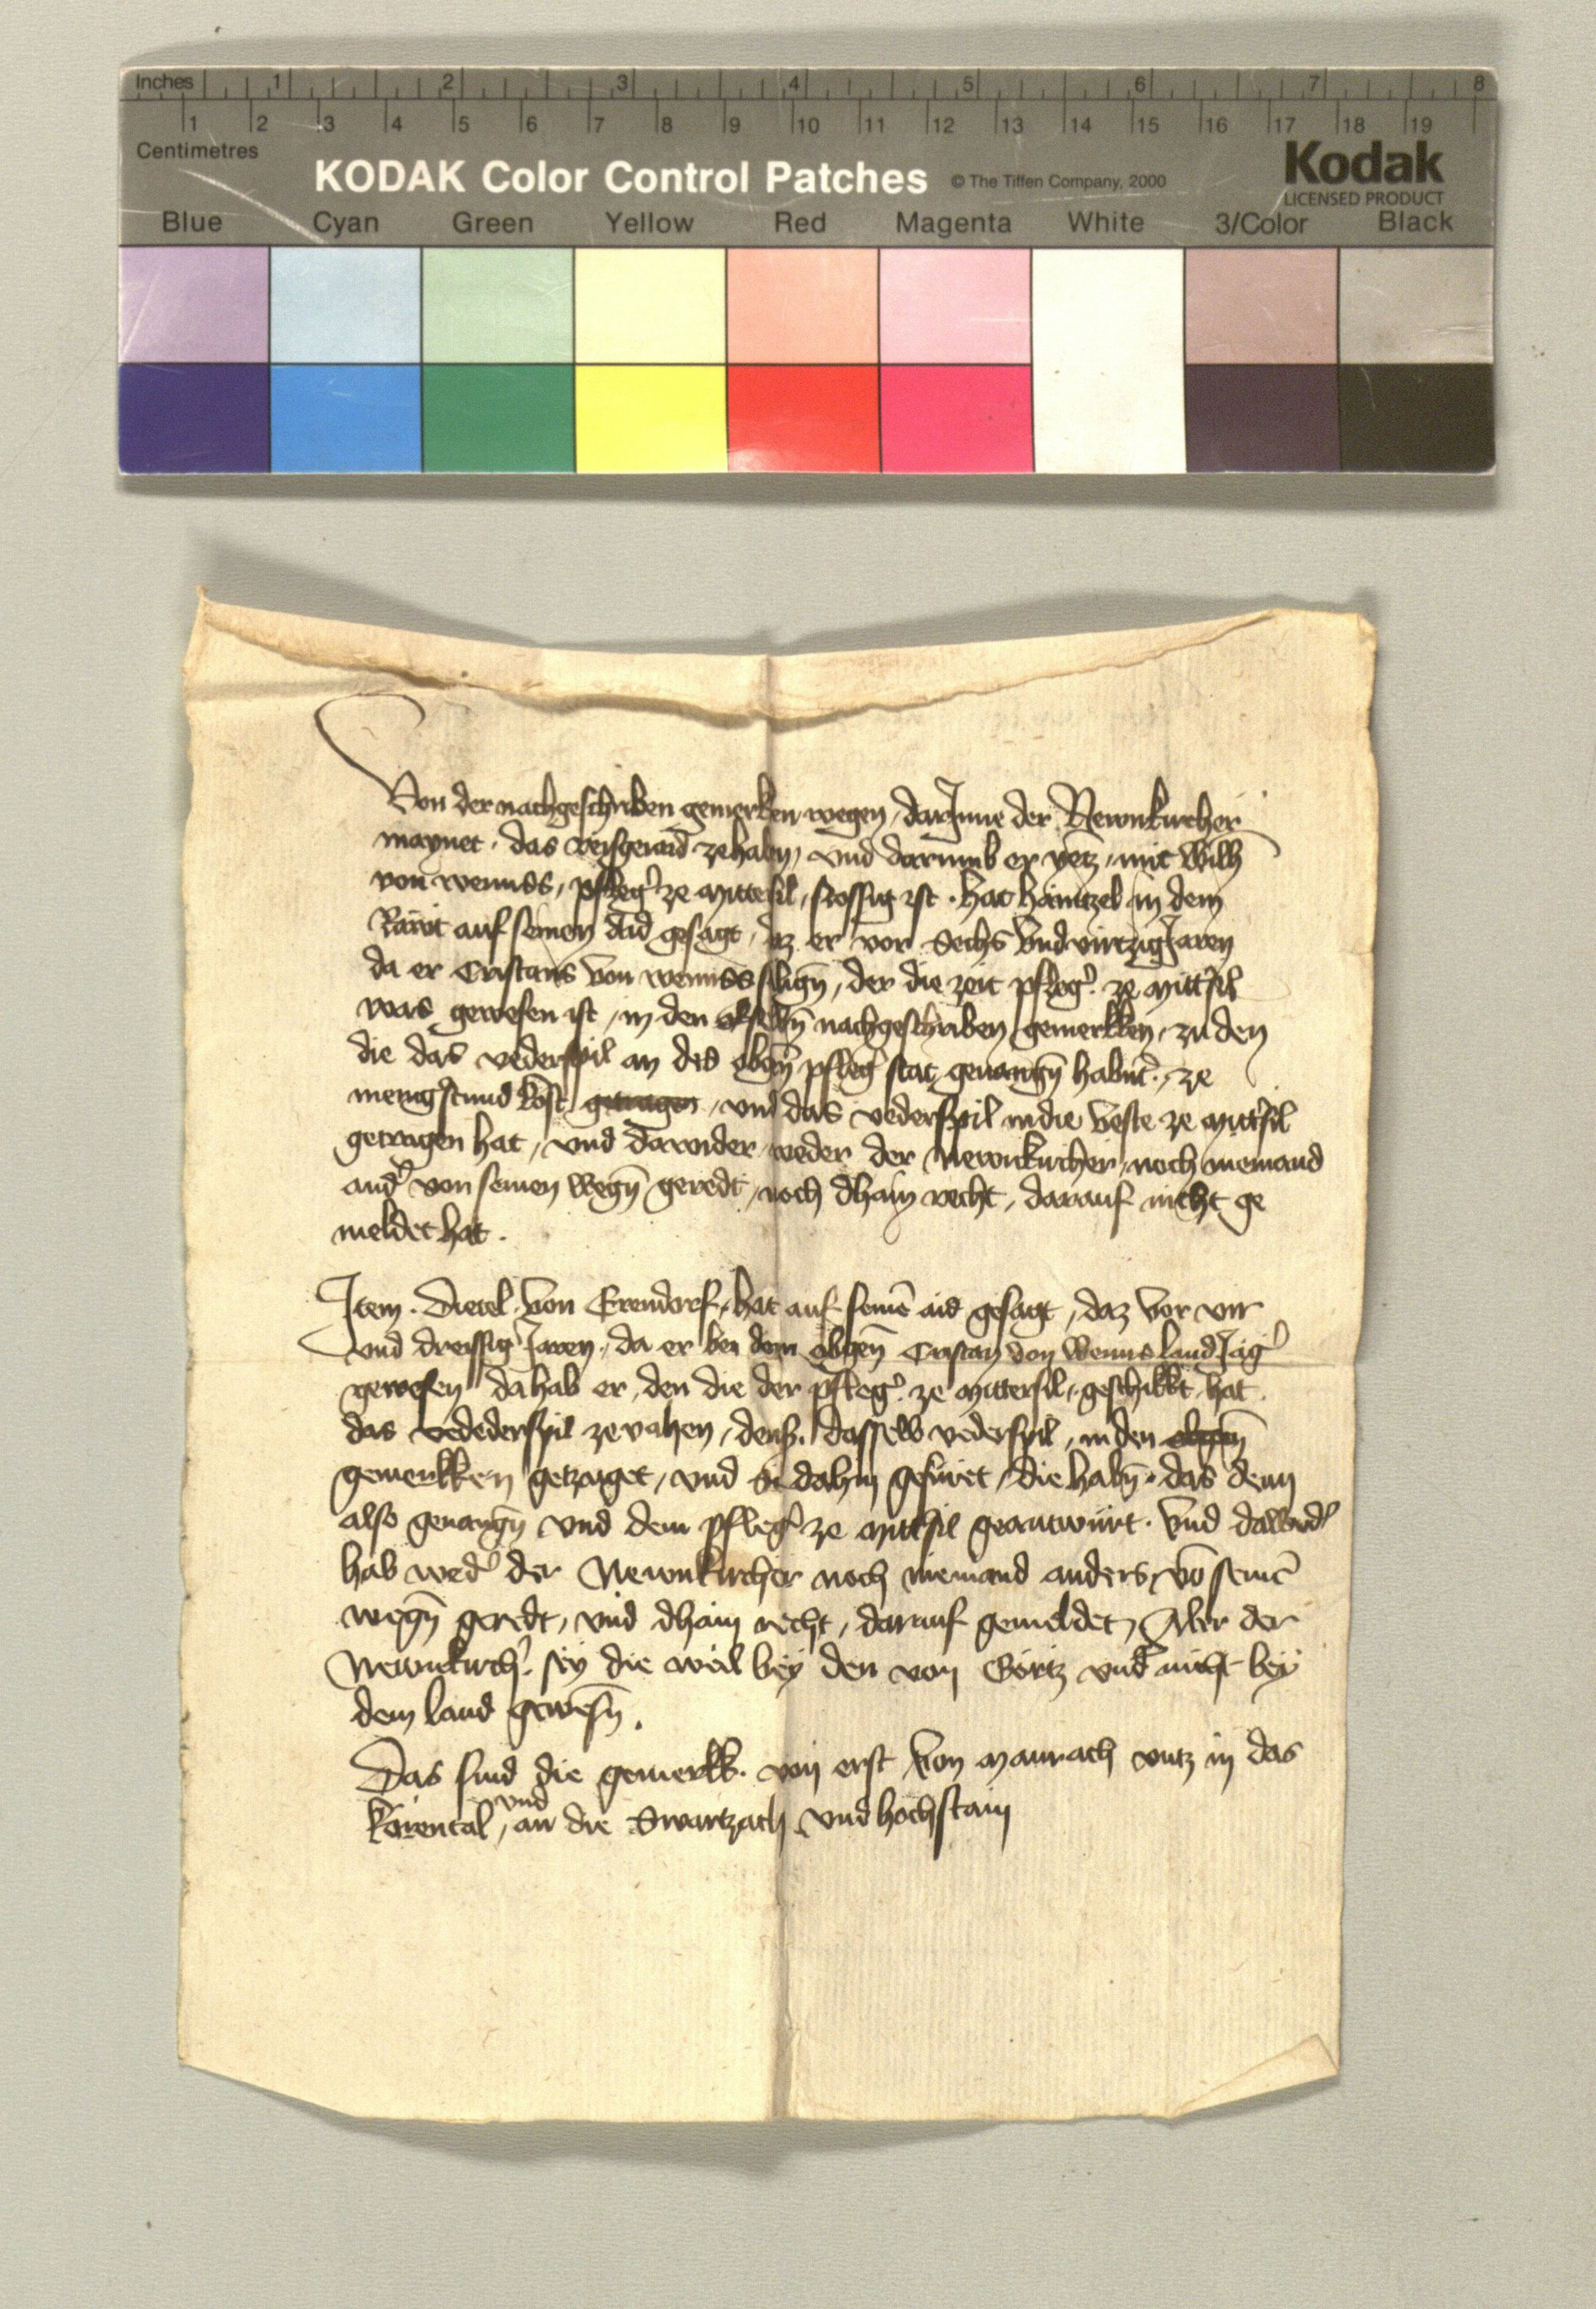 Inches 1 2 3 4 5 6 7 8
1 2 3 4 5 6 7 8 9 10 11 12 13 14 15 16 17 18 19
Centimetres
KODAK Color Control Patches © The Tiffen Company, 2000 Kodak
LICENSED PRODUCT
Blue Cyan Green Yellow Red Magenta White 3/Color Black
Von der nachgeschriben gemerken wegen, darJnne der Newnkircher
maynet, das zehaben, vnd darumb er yetz, mit Wilh
von wennss, pfleg ze Mittesil, stossig ist. hat haintzel in dem
Rawt auf seinen aid gesagt, daz er vor Sechs vnd virtzig Jaren
da er Cristans von wennss seligen, der die zeit pfleg ze Mittsil
was gewesen ist, in den nachgeschriben gemerkken, zu den
die das vederspil an des obgen pfleg stat geuangen habnt, ze
menigstund kost getragen, vnd das vederspil in die veste ze Mittsil
getragen hat, vnd dawider weder der Newnkircher, noch niemand
and von seinen wegen geredt, noch dhain recht, darauf nicht ge
meldet hat.
Item. Dietel von Erendorf, hat auf seine aid gesagt, daz vor vir
vnd dreissig Jaren, da er bei dem obgen Cristan von Wenns landJag
gewesen da hab er, den die der pfleg ze Mittersil, geschikkt hat
das vedederspil zevahen, dens. dasselb vederspil, in den obgen
gemerkken getzaiget, vnd si dahin gefüret, die haben das denn
also geuangen vnd dem pfleg ze Mittsil geantwürt. Vnd dawid
hab wed der Newnkircher noch niemand anders, vo seine
wegen geredt, vnd dhain recht, darauf gemeldet, Aber der
Newnkirch sey die weil bey den von Görtz vnd nicht bey
dem land gewesen.
Das sind die gemerkk. von erst von Maurach vntz in das
vnd
Kärental, an die Swartzach vnd hochstain